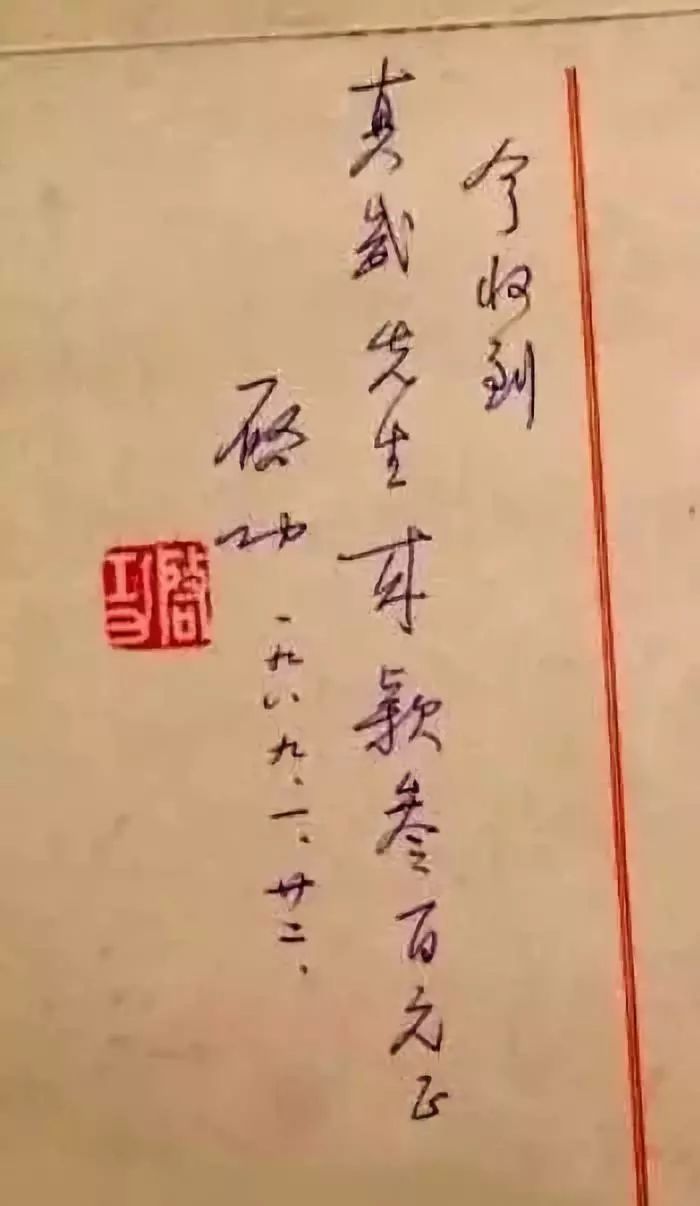 今收到
真先生款叁百元正
启功
一九八九.一.廿二.
啓功